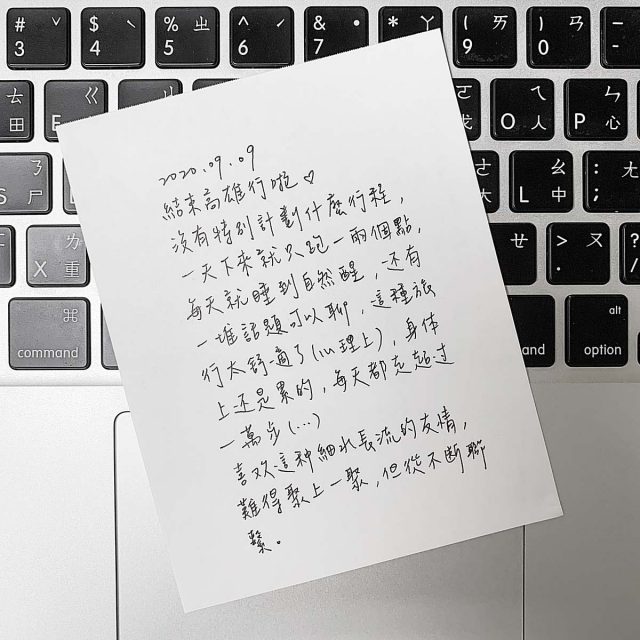 # 3 ˇ
$ 4 ˋ
% 5 ㄓ
^ 6 ˊ
& 7 ˙
* ㄚ
( 9 ㄞ
) 0 ㄢ
-
ㄊ 田
ㄍ
ㄛ 戈
O ㄟ 人
P ㄣ 心
S ㄋ 尸
L ㄠ 中
: ; ㄤ
X ㄌ 重
ㄝ
> . ㄡ
? /
⌘ command
and
alt option
2020.09.09
結束高雄行啦♡
沒有特別計劃什麼行程，
一天下來就只跑一兩個點，
每天就睡到自然醒，還有
一堆話題可以聊，這種旅
行太舒適了(心理上)，身体
上还是累的，每天都走超过
一萬步(…)
喜欢這种細水長流的友情，
難得聚上一聚，但從不斷聯
繫。